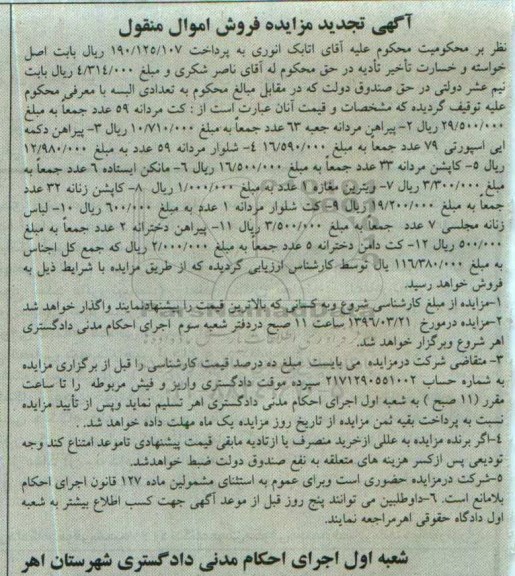 آگهی تجدید مزایده فروش اموال منقول
نظر بر محکومیت محکوم علیه آقای اتابک انوری به پرداخت ۱۹۰/۱۲۵/۱۰۷ ریال بابت اصل
خواسته و خسارت تأخیر تأدیه در حق محکوم له آقای ناصر شکری و مبلغ ۴/۳۱۴/۰۰۰ ریال بابت
نیم عشر دولتی در حق صندوق دولت که در مقابل مبالغ محکوم به تعدادی البسه با معرفی محکوم
علیه توقیف گردیده که مشخصات و قیمت آنان عبارت است از : کت مردانه ۵۹ عدد جمعاً به مبلغ
۲۹/۵۰۰/۰۰۰ ریال ۲- پیراهن مردانه جعبه ۶۳ عدد جمعاً به مبلغ ۱۰/۷۱۰/۰۰۰ ریال ۳- پیراهن دکمه
ایی اسپورتی ۷۹ عدد جمعاً به مبلغ ۱۶/۵۹۰/۰۰۰ ۴- شلوار مردانه ۵۹ عدد به مبلغ ۱۲/۹۸۰/۰۰۰
ریال ۵- کاپشن مردانه ۳۳ عدد جمعاً به مبلغ ۱۶/۵۰۰/۰۰۰ ریال ۶- مانکن ایستاده ۶ عدد جمعاً به
مبلغ ۳/۳۰۰/۰۰۰ ریال ۷- ویترین مغازه ۱ عدد به مبلغ ۱/۰۰۰/۰۰۰ ریال ۸- کاپشن زنانه ۳۲ عدد
جمعاً به مبلغ ۱۹/۲۰۰/۰۰۰ ریال ۹- کت شلوار مردانه ۱ عدد به مبلغ ۶۰۰/۰۰۰ ریال ۱۰- لباس
زنانه مجلسی ۷ عدد جمعاً به مبلغ ۳/۵۰۰/۰۰۰ ریال ۱۱- پیراهن دخترانه ۲ عدد جمعاً به مبلغ
۵۰۰/۰۰۰ ریال ۱۲- کت دامن دخترانه ۵ عدد جمعاً به مبلغ ۲/۰۰۰/۰۰۰ ریال که جمع کل اجناس
به مبلغ ۱۱۶/۳۸۰/۰۰۰ یال توسط کارشناس ارزیابی گردیده که از طریق مزایده با شرایط ذیل به
فروش خواهد رسید.
۱-مزایده از مبلغ کارشناسی شروع وبه کسانی که بالاترین قیمت را پیشنهادنمایند واگذار خواهد شد
۲-مزایده درمورخ ۱۳۹۶/۰۳/۲۱ ساعت ۱۱ صبح دردفتر شعبه سوم اجرای احکام مدنی دادگستری
اهر شروع وبرگزار خواهد شد.
۳- متقاضی شرکت درمزایده می بایست مبلغ ده درصد قیمت کارشناسی را قبل از برگزاری مزایده
به شماره حساب ۲۱۷۱۲۹۰۵۵۱۰۰۲ سپرده موقت دادگستری واریز و فیش مربوطه را تا ساعت
مقرر (۱۱ صبح ) به شعبه اول اجرای احکام مدنی دادگستری اهر تسلیم نماید وپس از تأیید مزایده
نسبت به پرداخت بقیه ثمن مزایده از تاریخ روز مزایده یک ماه مهلت داده خواهد شد..
۴-اگر برنده مزایده به عللی ازخرید منصرف یا ازتادیه مابقی قیمت پیشنهادی تاموعد امتناع کند وجه
تودیعی پس ازکسر هزینه های متعلقه به نفع صندوق دولت ضبط خواهدشد.
۵-شرکت درمزایده حضوری است وبرای عموم به استثنای مشمولین ماده ۱۲۷ قانون اجرای احکام
بلامانع است. ۶-داوطلبین می توانند پنج روز قبل از موعد آگهی جهت کسب اطلاع بیشتر به شعبه
اول دادگاه حقوقی اهرمراجعه نمایند.
شعبه اول اجرای احکام مدنی دادگستری شهرستان اهر